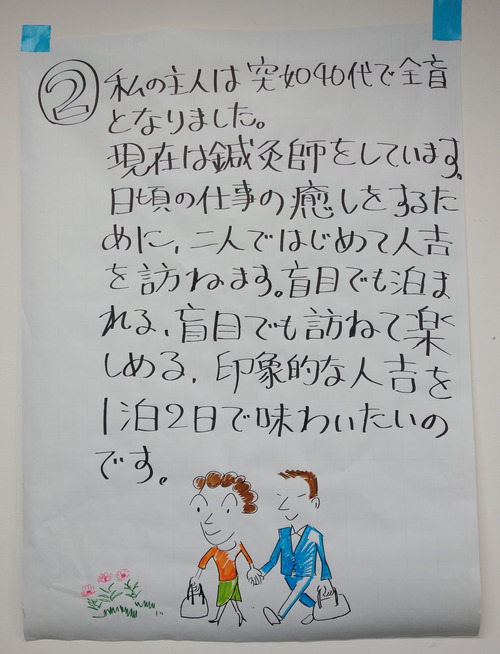 ② 私の主人は突如40代で全盲
となりました。
現在は鍼灸師をしています。
日頃の仕事の癒しをするた
めに、二人ではじめて人吉
を訪ねます。盲目でも泊ま
れる、盲目でも訪ねて楽
しめる、印象的な人吉を
1泊2日で味わいたいの
です。